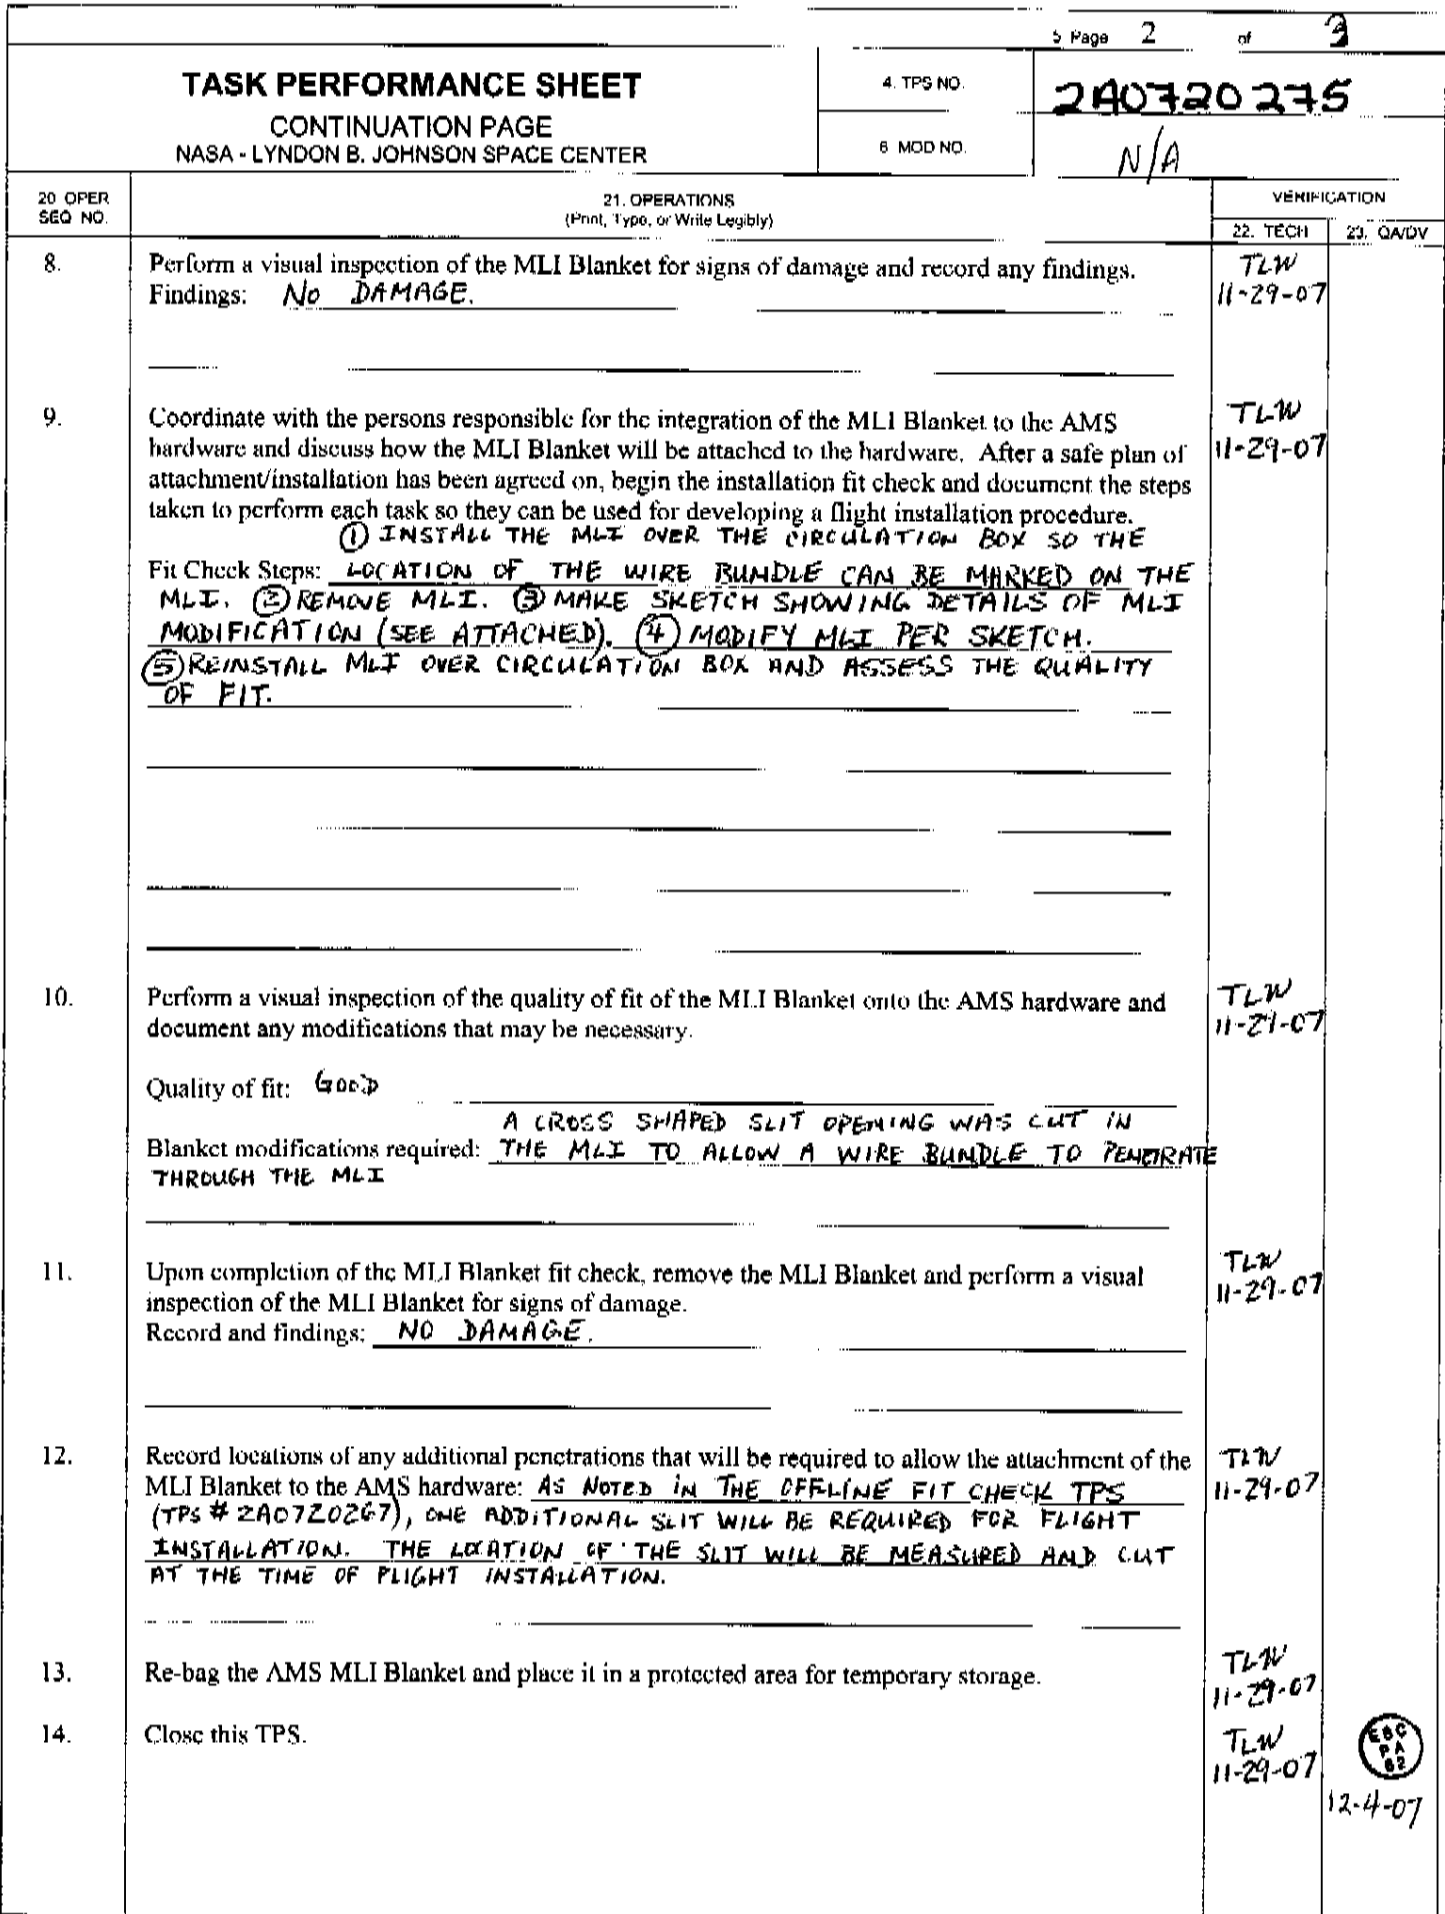 5 Page 2 of 3
TASK PERFORMANCE SHEET
CONTINUATION PAGE
NASA - LYNDON B. JOHNSON SPACE CENTER
4. TPS NO.
2A0720275
6 MOD NO.
N/A
20 OPER
SEQ NO.
21. OPERATIONS
(Print, Type, or Write Legibly)
VERIFICATION
22. TECH
23. QA/DV
8. Perform a visual inspection of the MLI Blanket for signs of damage and record any findings.
Findings: No DAMAGE.
TLW
11-29-07
9. Coordinate with the persons responsible for the integration of the MLI Blanket to the AMS
hardware and discuss how the MLI Blanket will be attached to the hardware. After a safe plan of
attachment/installation has been agreed on, begin the installation fit check and document the steps
taken to perform each task so they can be used for developing a flight installation procedure.
① INSTALL THE MLI OVER THE CIRCULATION BOX SO THE
Fit Check Steps: LOCATION OF THE WIRE BUNDLE CAN BE MARKED ON THE
MLI. ② REMOVE MLI. ③ MAKE SKETCH SHOWING DETAILS OF MLI
MODIFICATION (SEE ATTACHED). ④ MODIFY MLI PER SKETCH.
⑤ REINSTALL MLI OVER CIRCULATION BOX AND ASSESS THE QUALITY
OF FIT.
TLW
11-29-07
10. Perform a visual inspection of the quality of fit of the MLI Blanket onto the AMS hardware and
document any modifications that may be necessary.
Quality of fit: GOOD
A CROSS SHAPED SLIT OPENING WAS CUT IN
Blanket modifications required: THE MLI TO ALLOW A WIRE BUNDLE TO PENETRATE
THROUGH THE MLI
TLW
11-29-07
11. Upon completion of the MLI Blanket fit check, remove the MLI Blanket and perform a visual
inspection of the MLI Blanket for signs of damage.
Record and findings: NO DAMAGE.
TLW
11-29-07
12. Record locations of any additional penetrations that will be required to allow the attachment of the
MLI Blanket to the AMS hardware: AS NOTED IN THE OFFLINE FIT CHECK TPS
(TPS # 2A0720267), ONE ADDITIONAL SLIT WILL BE REQUIRED FOR FLIGHT
INSTALLATION. THE LOCATION OF THE SLIT WILL BE MEASURED AND CUT
AT THE TIME OF FLIGHT INSTALLATION.
TLW
11-29-07
13. Re-bag the AMS MLI Blanket and place it in a protected area for temporary storage.
TLW
11-29-07
14. Close this TPS.
TLW
11-29-07
PA
62
12-4-07